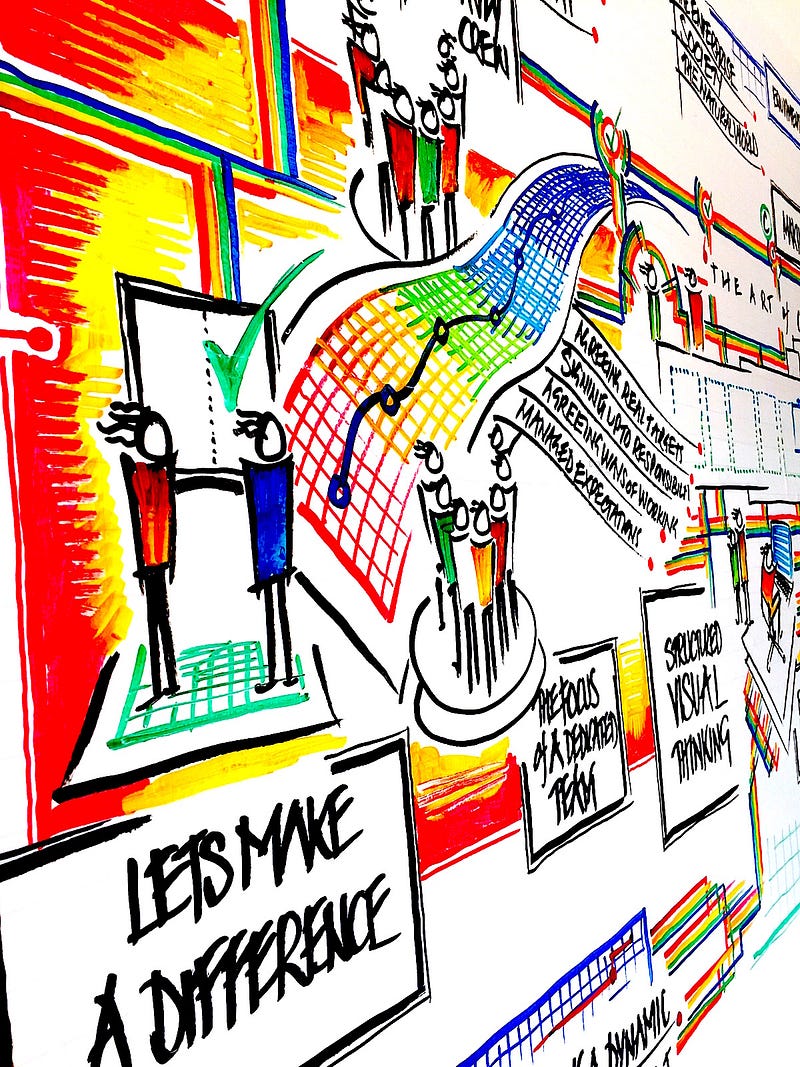 CREW
SOCIETY
THE NATURAL WORLD
THE ART
AGREEING REAL TARGETS
SIGNING UP TO RESPONSIBILITY
AGREEING WAYS OF WORKING
MANAGED EXPECTATIONS
THE FOCUS
of A DEDICATED
TEAM
STRUCTURED
VISUAL
THINKING
LETS MAKE
A DIFFERENCE
A DYNAMIC